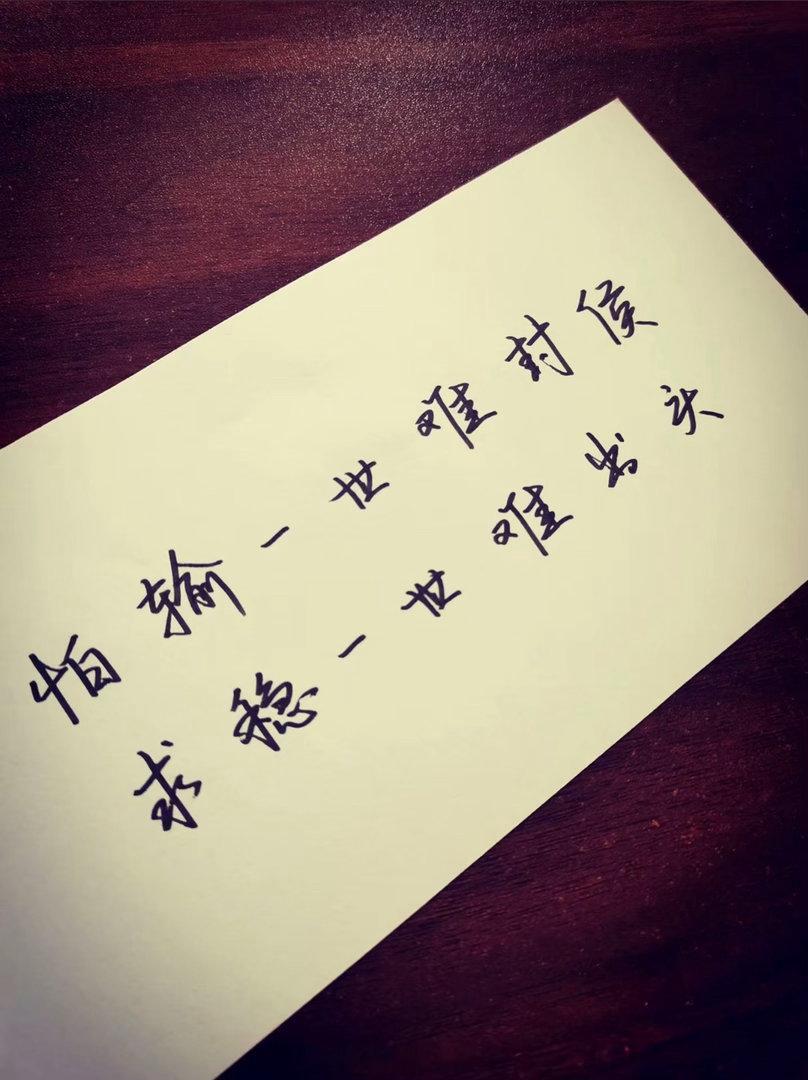 怕输一世难封侯
求稳一世难出头